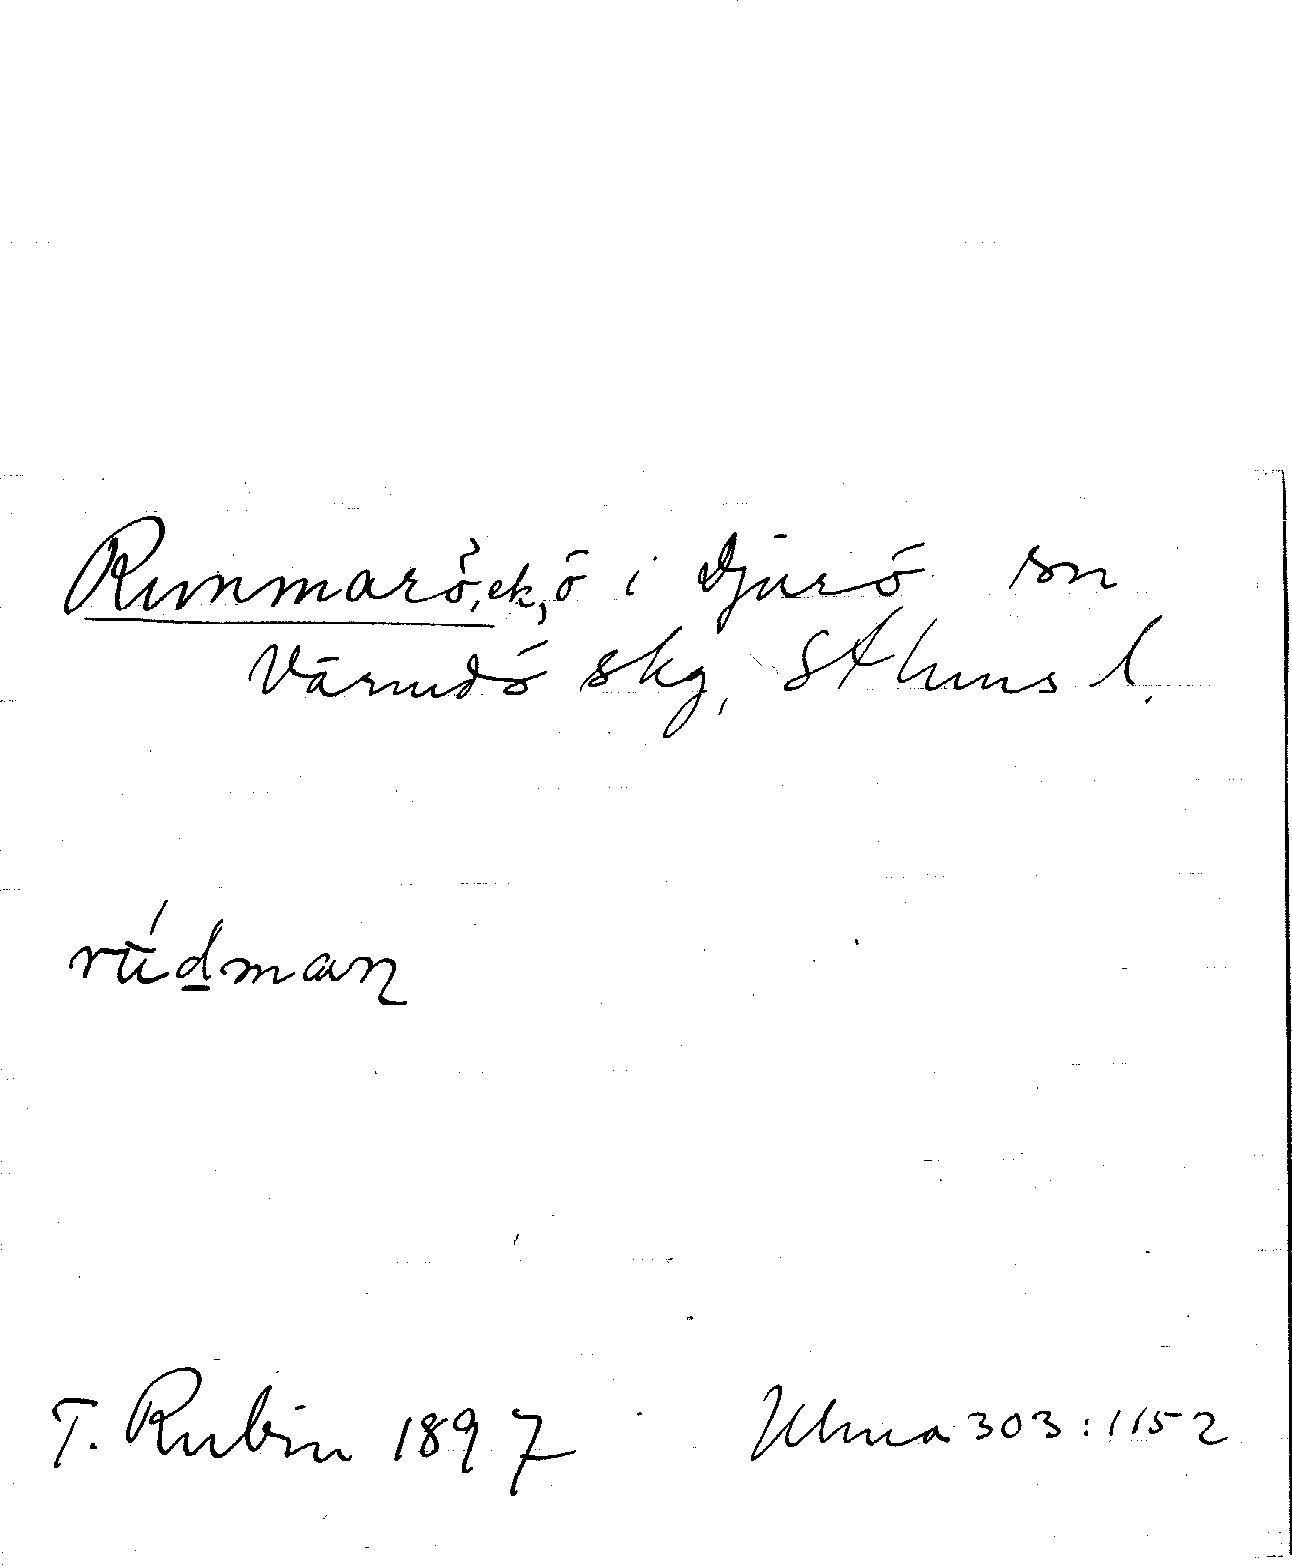 Runmarö, ek, ö i Djurö sn
Värmdö skg, Sthms l.
rúdman
T. Rubin 1897 Ulma 303:1152